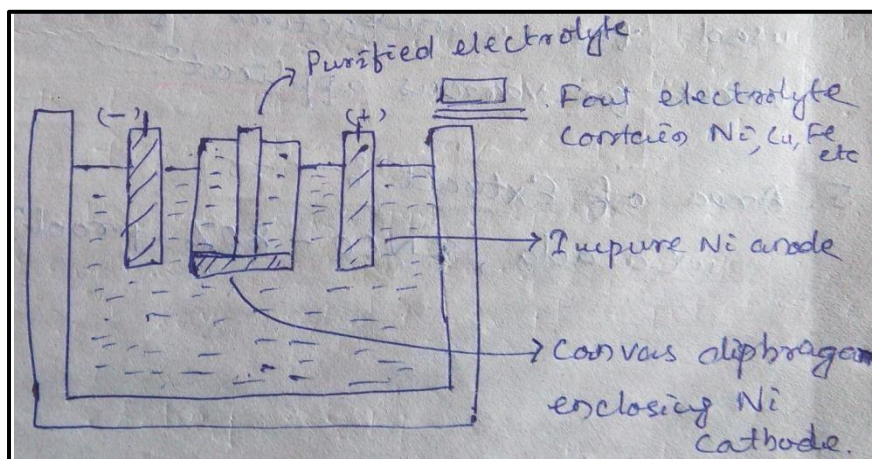 Purified electrolyte
(-)
(+)
Foul electrolyte
Contains Ni, Cu, Fe
etc
Impure Ni anode
Canvas diphragam
enclosing Ni
Cathode.